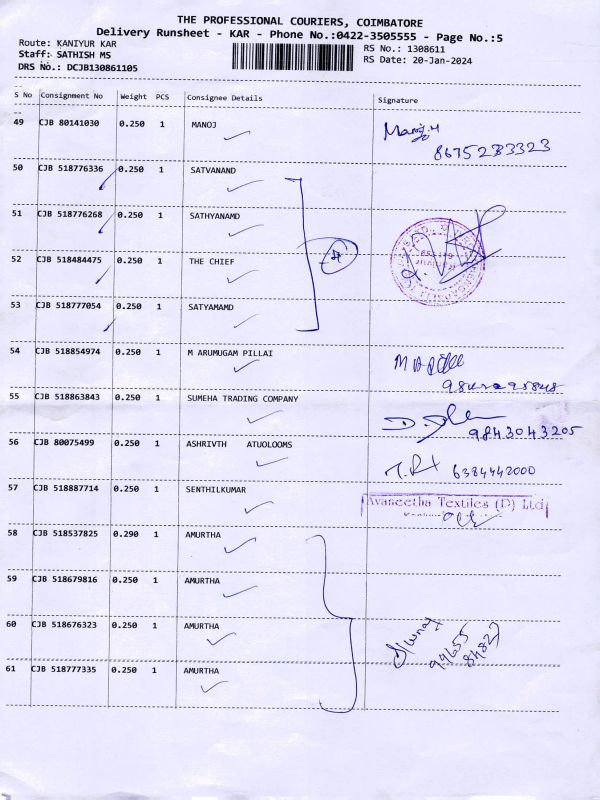 THE PROFESSIONAL COURIERS, COIMBATORE
Delivery Runsheet - KAR - Phone No.:0422-3505555 - Page No.:5
Route: KANIYUR KAR RS No.: 1308611
Staff: SATHISH MS RS Date: 20-Jan-2024
DRS No.: DCJB130861105
S No Consignment No Weight PCS Consignee Details Signature
49 CJB 80141030 0.250 1 MANOJ
8675233323
50 CJB 518776336 0.250 1 SATVANAND
51 CJB 518776268 0.250 1 SATHYANAMD
52 CJB 518484475 0.250 1 THE CHIEF
53 CJB 518777054 0.250 1 SATYAMAMD
54 CJB 518854974 0.250 1 M ARUMUGAM PILLAI
55 CJB 518863843 0.250 1 SUMEHA TRADING COMPANY
9843043205
56 CJB 80075499 0.250 1 ASHRIVTH ATUOLOOMS
6384442000
57 CJB 518887714 0.250 1 SENTHILKUMAR
Avaneetha Textiles (P) Ltd
58 CJB 518537825 0.290 1 AMURTHA
59 CJB 518679816 0.250 1 AMURTHA
60 CJB 518676323 0.250 1 AMURTHA
99655
84827
61 CJB 518777335 0.250 1 AMURTHA